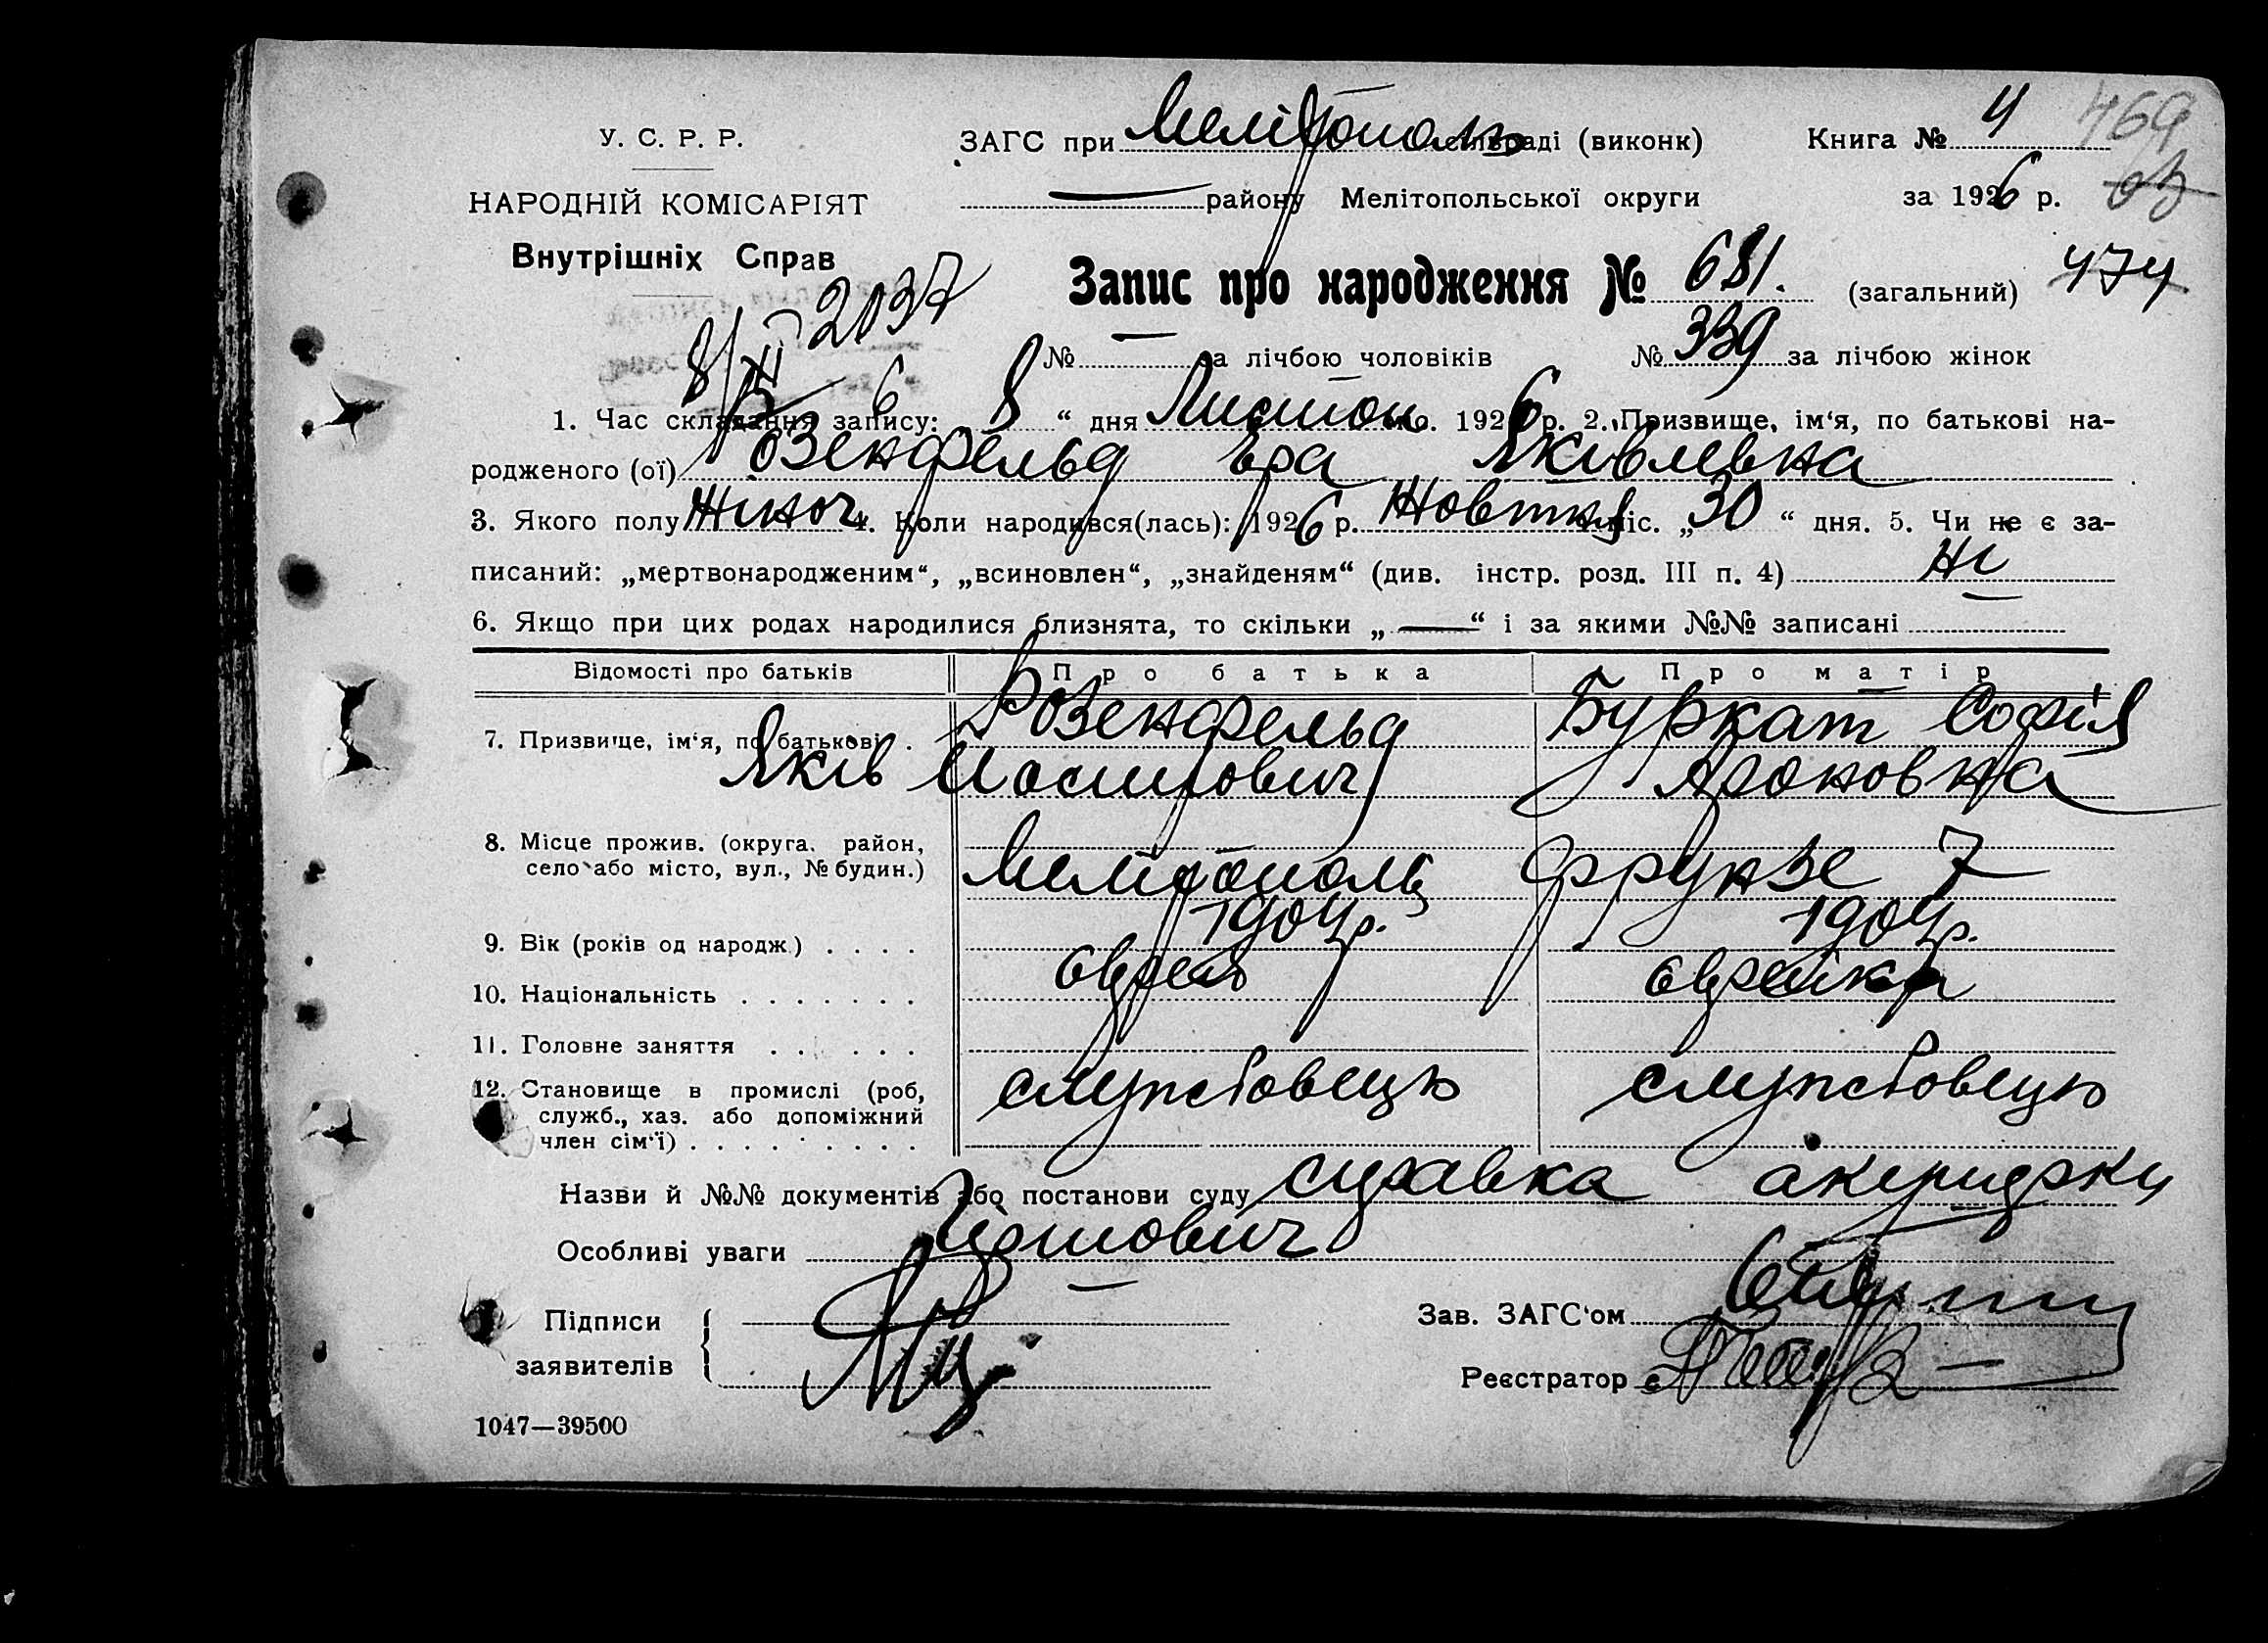 У. С. Р. Р.
НАРОДНІЙ КОМІСАРІЯТ
Внутрішніх Справ
ЗАГС при Мелітополь сільраді (виконк)
Книга № 4
469
району Мелітопольської округи
за 1926 р.
Запис про народження № 681. (загальний) 474
2037
№ — за лічбою чоловіків № 339 за лічбою жінок
1. Час складання запису: 8 “ дня Листоп. 1926 р. 2. Призвище, ім‘я, по батькові на-
родженого (ої) Розенфельд Ера Яківлевна
3. Якого полу Жіноч 4. Коли народився(лась): 1926 р. Жовтня міс. „ 30 “ дня. 5. Чи не є за-
писаний: „мертвонародженим“, „всиновлен“, „знайденям“ (див. інстр. розд. III п. 4) Ні
6. Якщо при цих родах народилися близнята, то скільки „ — “ і за якими №№ записані
Відомості про батьків Про батька Про матір
7. Призвище, ім‘я, по батькові . Розенфельд Буркат Софія
Яків Иосипович Ароновна
8. Місце прожив. (округа, район,
село або місто, вул., № будин.) Мелітополь Фрунзе 7
9. Вік (років од народж.) . . . . 1904р. 1904р.
10. Національність . . . . . . . єврей єврейка
11. Головне заняття . . . . . .
12. Становище в промислі (роб,
служб., хаз. або допоміжний
член сім‘ї) . . . . . . . . . службовець службовець
Назви й №№ документів або постанови суду справка акушерки
Особливі уваги
Підписи
заявителів
Зав. ЗАГС‘ом
Реєстратор
1047—39500